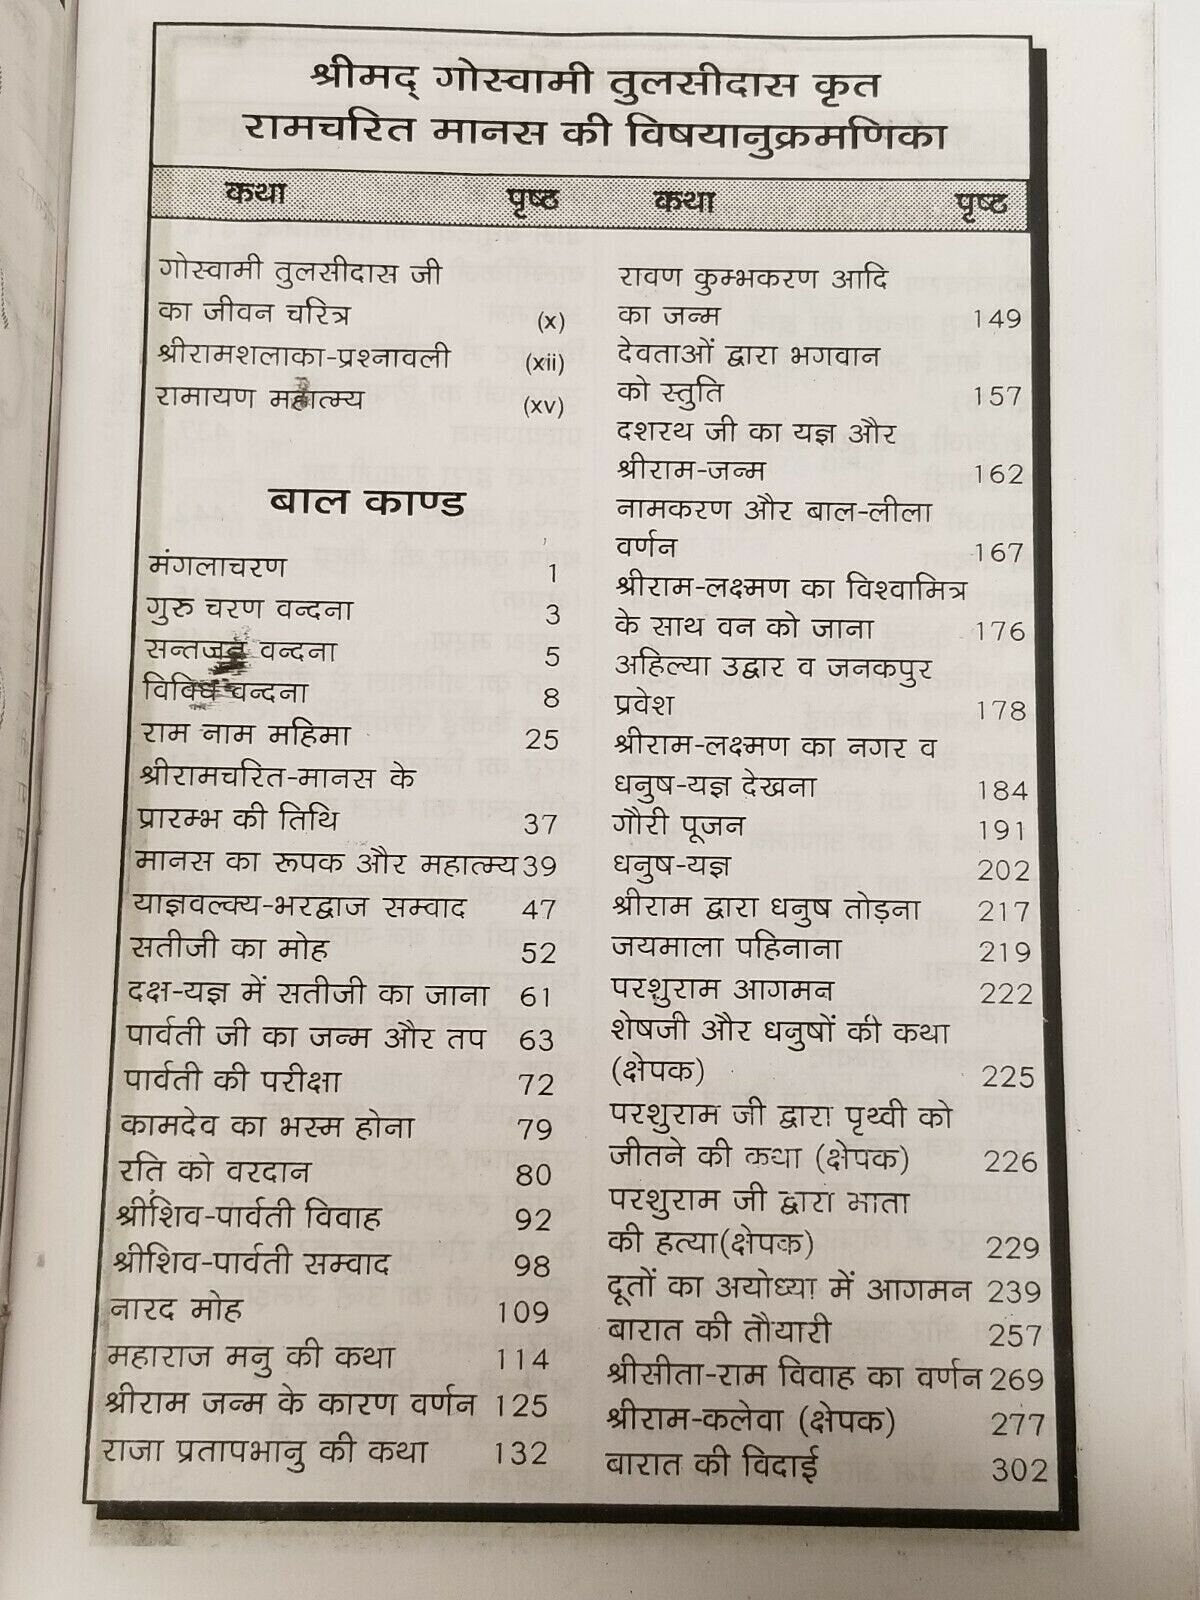 श्रीमद् गोस्वामी तुलसीदास कृत
रामचरित मानस की विषयानुक्रमणिका
कथा पृष्ठ कथा पृष्ठ
गोस्वामी तुलसीदास जी
का जीवन चरित्र (x)
श्रीरामशलाका-प्रश्नावली (xii)
रामायण महात्म्य (xv)
बाल काण्ड
मंगलाचरण 1
गुरु चरण वन्दना 3
सन्तजन वन्दना 5
विविध वन्दना 8
राम नाम महिमा 25
श्रीरामचरित-मानस के
प्रारम्भ की तिथि 37
मानस का रूपक और महात्म्य 39
याज्ञवल्क्य-भरद्वाज सम्वाद 47
सतीजी का मोह 52
दक्ष-यज्ञ में सतीजी का जाना 61
पार्वती जी का जन्म और तप 63
पार्वती की परीक्षा 72
कामदेव का भस्म होना 79
रति को वरदान 80
श्रीशिव-पार्वती विवाह 92
श्रीशिव-पार्वती सम्वाद 98
नारद मोह 109
महाराज मनु की कथा 114
श्रीराम जन्म के कारण वर्णन 125
राजा प्रतापभानु की कथा 132
रावण कुम्भकरण आदि
का जन्म 149
देवताओं द्वारा भगवान
को स्तुति 157
दशरथ जी का यज्ञ और
श्रीराम-जन्म 162
नामकरण और बाल-लीला
वर्णन 167
श्रीराम-लक्ष्मण का विश्वामित्र
के साथ वन को जाना 176
अहिल्या उद्वार व जनकपुर
प्रवेश 178
श्रीराम-लक्ष्मण का नगर व
धनुष-यज्ञ देखना 184
गौरी पूजन 191
धनुष-यज्ञ 202
श्रीराम द्वारा धनुष तोड़ना 217
जयमाला पहिनाना 219
परशुराम आगमन 222
शेषजी और धनुषों की कथा
(क्षेपक) 225
परशुराम जी द्वारा पृथ्वी को
जीतने की कथा (क्षेपक) 226
परशुराम जी द्वारा माता
की हत्या(क्षेपक) 229
दूतों का अयोध्या में आगमन 239
बारात की तौयारी 257
श्रीसीता-राम विवाह का वर्णन 269
श्रीराम-कलेवा (क्षेपक) 277
बारात की विदाई 302